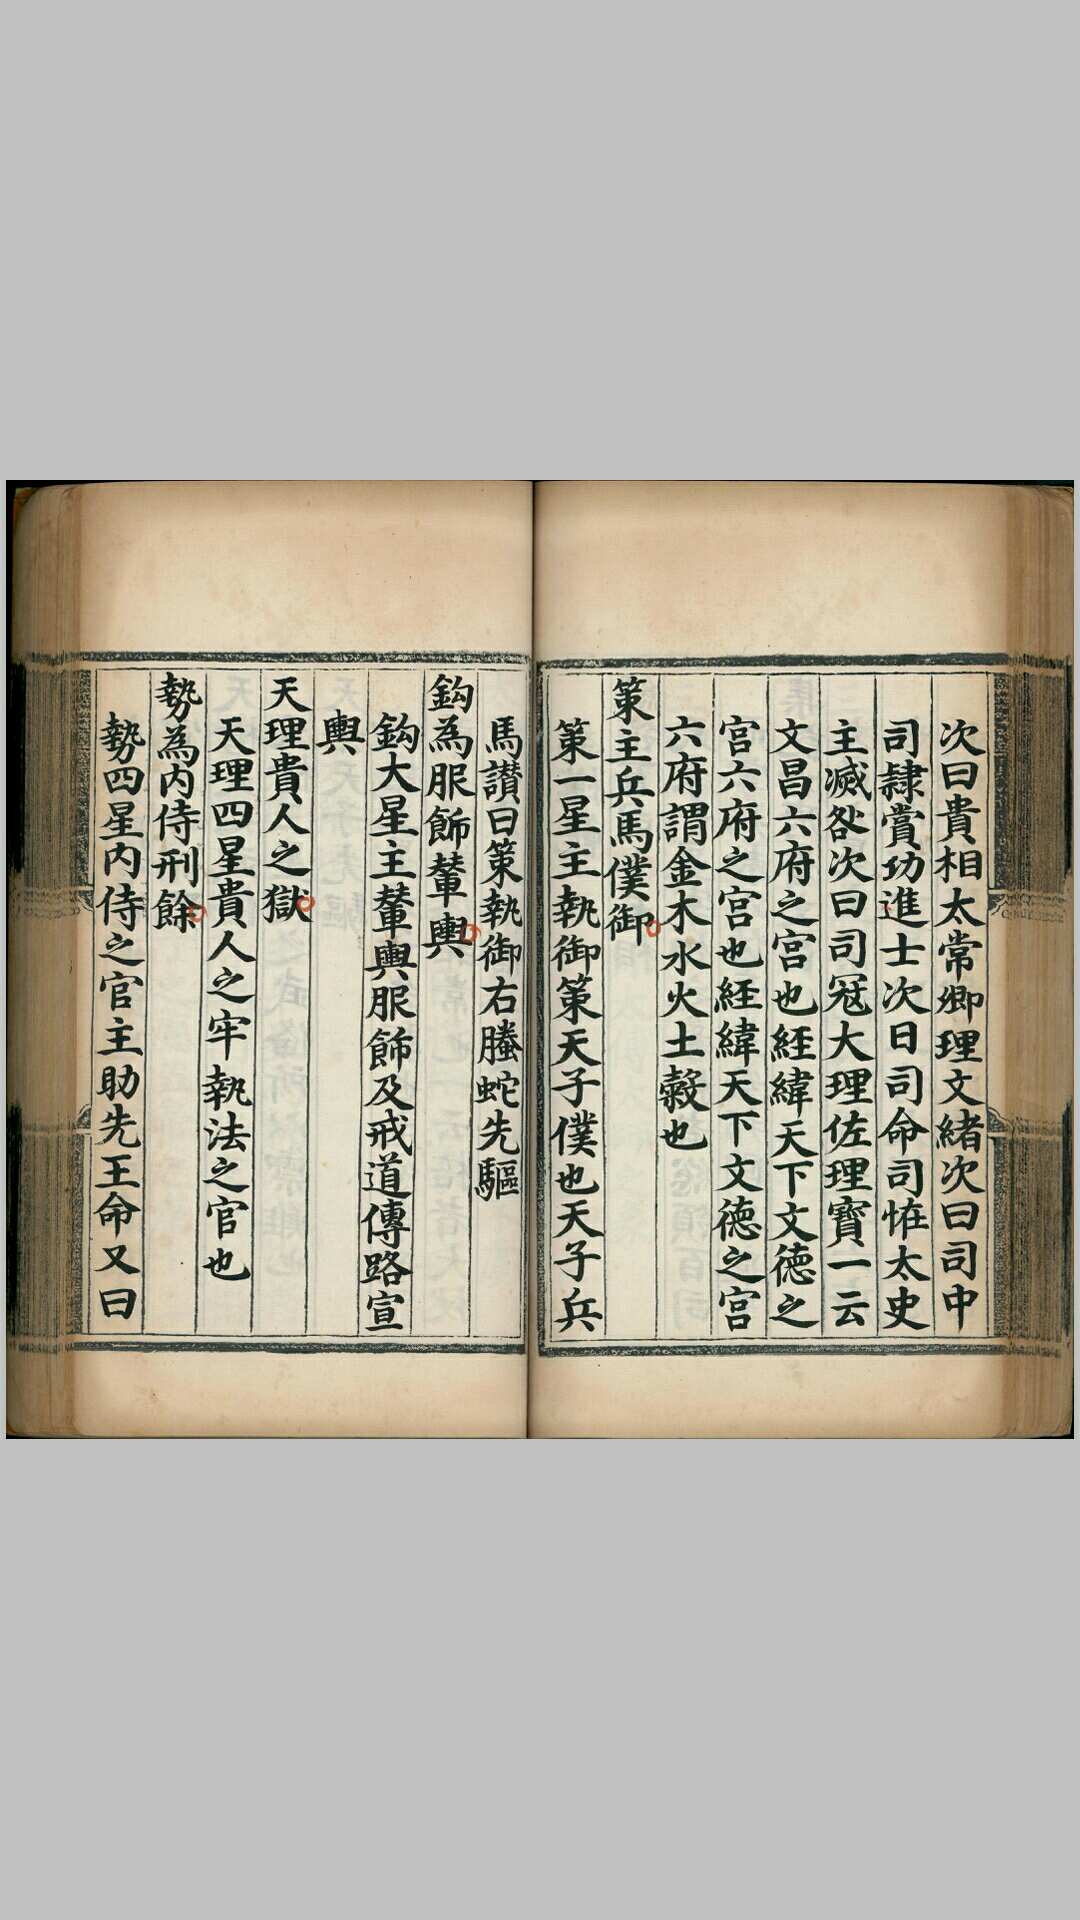 次曰貴相太常卿理文緒次曰司中
司隸賞功進士次曰司命司恠太史
主滅咎次曰司冦大理佐理寶一云
文昌六府之宫也經緯天下文德之
宫六府之宫也經緯天下文德之宫
六府謂金木水火土穀也
策主兵馬僕御
策一星主執御策天子僕也天子兵
馬讃曰策執御右螣蛇先驅
鈎為服飾輦輿
鈎大星主輦輿服飾及戒道傳路宣
輿
天理貴人之獄
天理四星貴人之牢執法之官也
勢為内侍刑餘
勢四星内侍之官主助先王命又曰